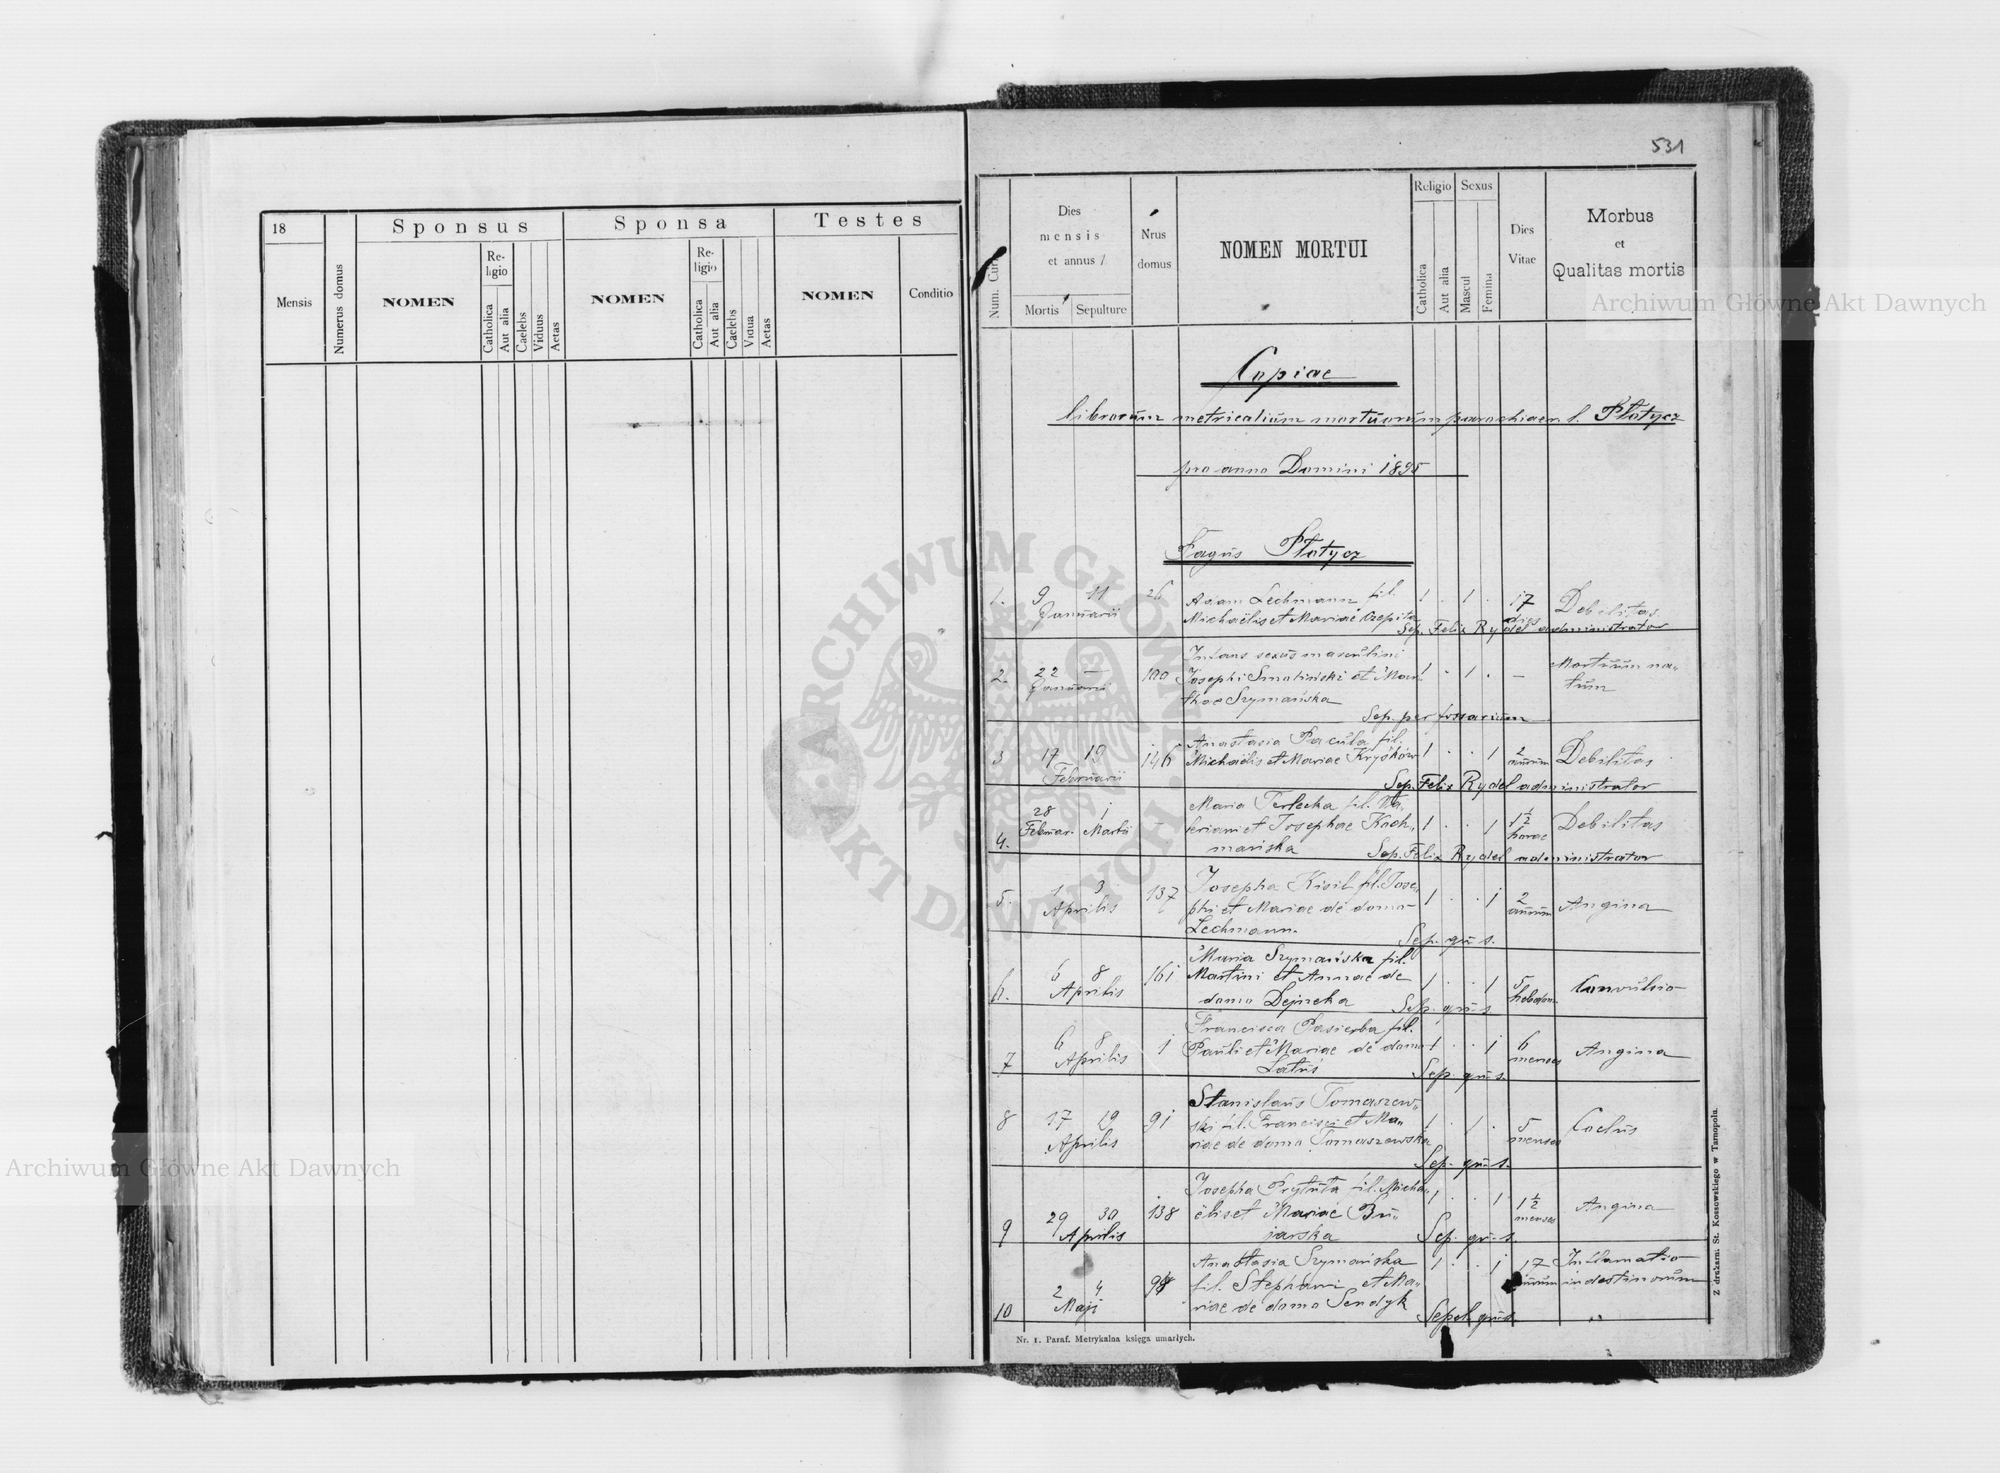 531
18
Mensis
Numerus domus
Sponsus
NOMEN
Religio
Catholica
Aut alia
Caelebs
Viduus
Aetas
Sponsa
NOMEN
Religio
Catholica
Aut alia
Caelebs
Vidua
Aetas
Testes
NOMEN
Conditio
Num. Cur.
Dies
mensis
et annus
Mortis
Sepulture
Nrus
domus
NOMEN MORTUI
Religio
Catholica
Aut alia
Sexus
Mascul
Femina
Dies
Vitae
Morbus
et
Qualitas mortis
Copiae
librorum metricalium mortuorum parochiae r. l. Płotycz
pro anno Domini 1895
Pagus Płotycz
1. 9 11 26 Adam Lechmann fil. 1 . 1 . 17 Debilitas
Januarii Michaëlis et Mariae Czepita dies
Sep. Felix Rydel administrator
Infans sexus masculini
2. 22 — 100 Josephi Smoliński et Mar- 1 . 1 . — Mortuum na-
Januarii thae Szymańska tum
Sep. per fossarium
Anastasia Pacuła fil.
3 17 19 146 Michaëlis et Mariae Kryśków 1 . . 1 2 annum Debilitas
Februarii
Sep. Felix Rydel administrator
28 1 Maria Terlecka fil. Va-
4. Februar. Martii — leriani et Josephae Kach- 1 . . 1 1½ horae Debilitas
marska
Sep. Felix Rydel administrator
5. 1 3 137 Josepha Kisil fil. Jose- 1 . . 1 2 annum Angina
Aprilis phi et Mariae de domo
Lechmann.
Sep. qu. s.
Maria Szymańska fil.
6. 6 8 161 Martini et Annae de 1 . . 1 5 hebdom. Convulsio
Aprilis domo Dejneka
Sep. qu. s.
Francisca Pasierba fil.
7 6 8 1 Pauli et Mariae de domo 1 . . 1 6 menses Angina
Aprilis Latus
Sep. qu. s.
Stanislaus Tomaszew-
8 17 19 91 ski fil. Francisci et Ma- 1 . 1 . 5 menses
Aprilis riae de domo Tomaszewska
Sep. qu. s.
Josepha Prytuła fil. Micha- 1 . . 1 1½ menses Angina
9 29 30 138 ëlis et Mariae Bu-
Aprilis jarska
Sep. qu. s.
Anastasia Szymańska 1 . . 1 17 Inflamatio
2 4 fil. Stephani et Ma- annum indestinorum
10 Maji riae de domo Sendyk
Sepel. qu. s.
Nr. 1. Paraf. Metrykalna księga umarłych.
Z drukarni St. Kossowskiego w Tarnopolu.
Archiwum Główne Akt Dawnych
Archiwum Główne Akt Dawnych
ARCHIWUM GŁÓWNE AKT DAWNYCH